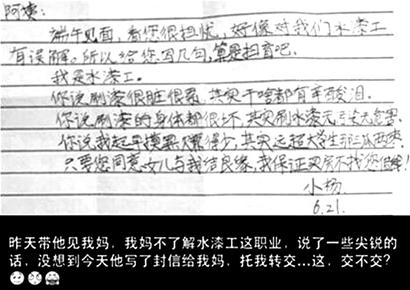 阿姨：
端午见面，看您很担忧，好像对我们水漆工
有误解。所以给您写几句，算是扫盲吧。
我是水漆工。
你说刷漆很脏很累，其实干啥都有辛酸泪。
你说刷漆的身体都很坏，其实刷水漆无
你说我起早摸黑 得少，其实远超大学生那三瓜两枣。
只要您同意女儿与我结良缘，我保证买房不找您
小杨
6.21.
昨天带他见我妈，我妈不了解水漆工这职业，说了一些尖锐的
话，没想到今天他写了封信给我妈，托我转交...这，交不交？